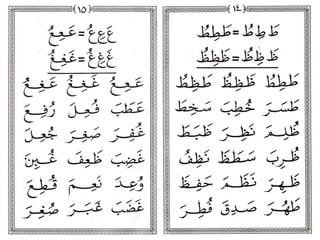 ١٤
طَ طِ طُ = طَطِطُ
ظَ ظِ ظُ = ظَظِظُ
طَطِطُ ظَظِظُ طَظِطُ
طَسَرَ خُطِبَ سَخِطَ
ظُلِمَ نَظِرَ ظَبَطَ
ظُرِبَ سَطَظَ نَظِفُ
ظَهِرَ نَظَمَ حَفِظَ
طَهُرَ صَدِقَ فُطِرَ
١٥
عَ عِ عُ = عَعِعُ
غَ غِ غُ = غَغِغُ
عَعِعُ غَغِغُ عَغِعُ
عَطَبَ فُعِلَ رُفِعَ
غُفِرَ صَغِرَ جُعِلَ
غَضِبَ ظَعِفَ غُبِنَ
وُعِدَ نَعِمَ قُطِعَ
غَضَبَ غَبَرَ صُغِرَ